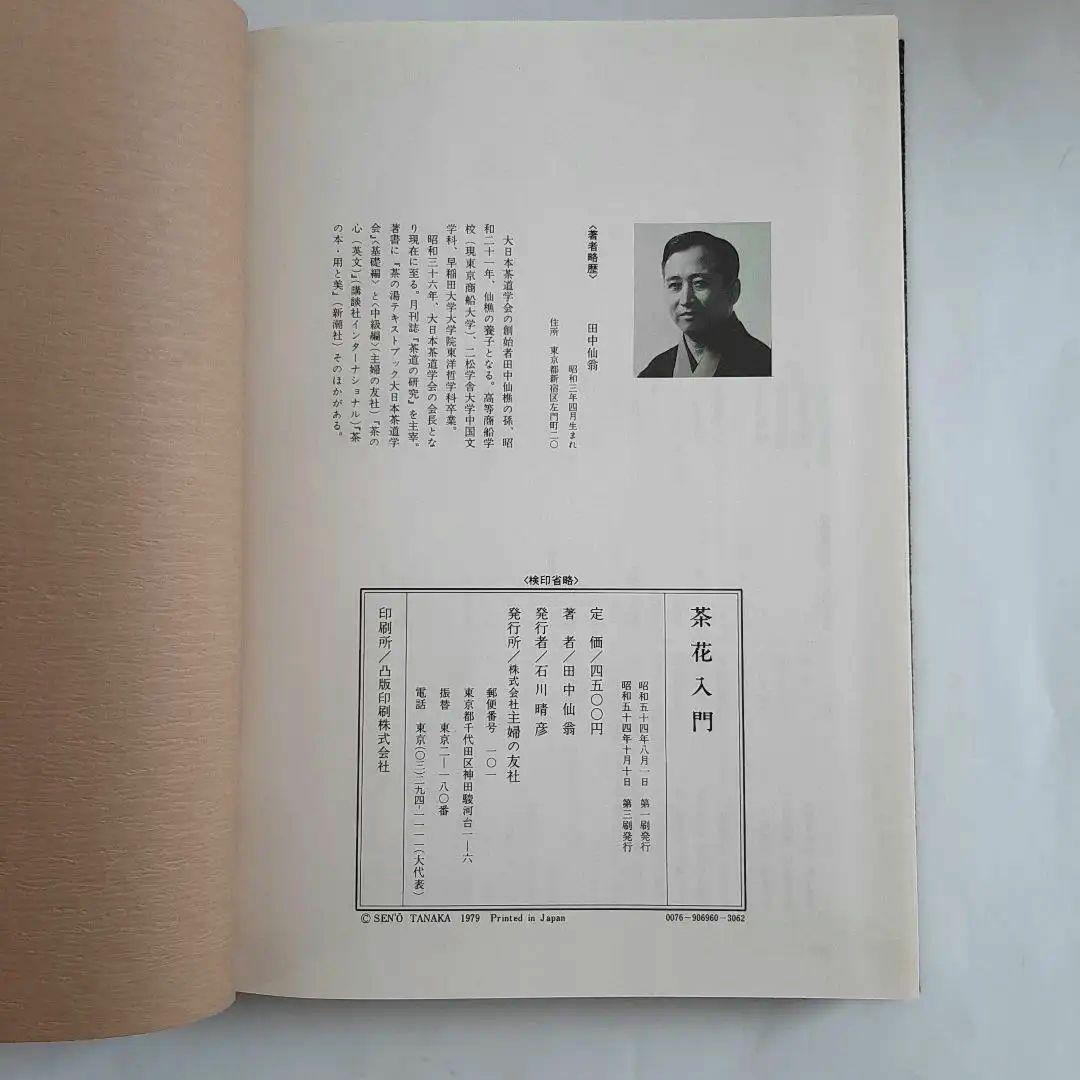 〈著者略歴〉
田中仙翁
昭和三年四月生まれ
住所 東京都新宿区左門町二〇
大日本茶道学会の創始者田中仙樵の孫、昭
和二十一年、仙樵の養子となる。高等商船学
校（現東京商船大学）、二松学舎大学中国文
学科、早稲田大学大学院東洋哲学科卒業。
昭和三十六年、大日本茶道学会の会長とな
り現在に至る。月刊誌『茶道の研究』を主宰。
著書に『茶の湯テキストブック大日本茶道学
会』〈基礎編〉と〈中級編〉（主婦の友社）『茶の
心（英文）』（講談社インターナショナル）『茶
の本・用と美』（新潮社）そのほかがある。
〈検印省略〉
茶花入門
昭和五十四年八月一日 第一刷発行
昭和五十四年十月十日 第三刷発行
定 価／四五〇〇円
著 者／田中仙翁
発行者／石川晴彦
発行所／株式会社主婦の友社
郵便番号 一〇一
東京都千代田区神田駿河台一ー六
振替 東京二ー一八〇番
電話 東京（〇三）二九四-一一一一（大代表）
印刷所／凸版印刷株式会社
© SEN'Ō TANAKA 1979 Printed in Japan
0076-906960-3062